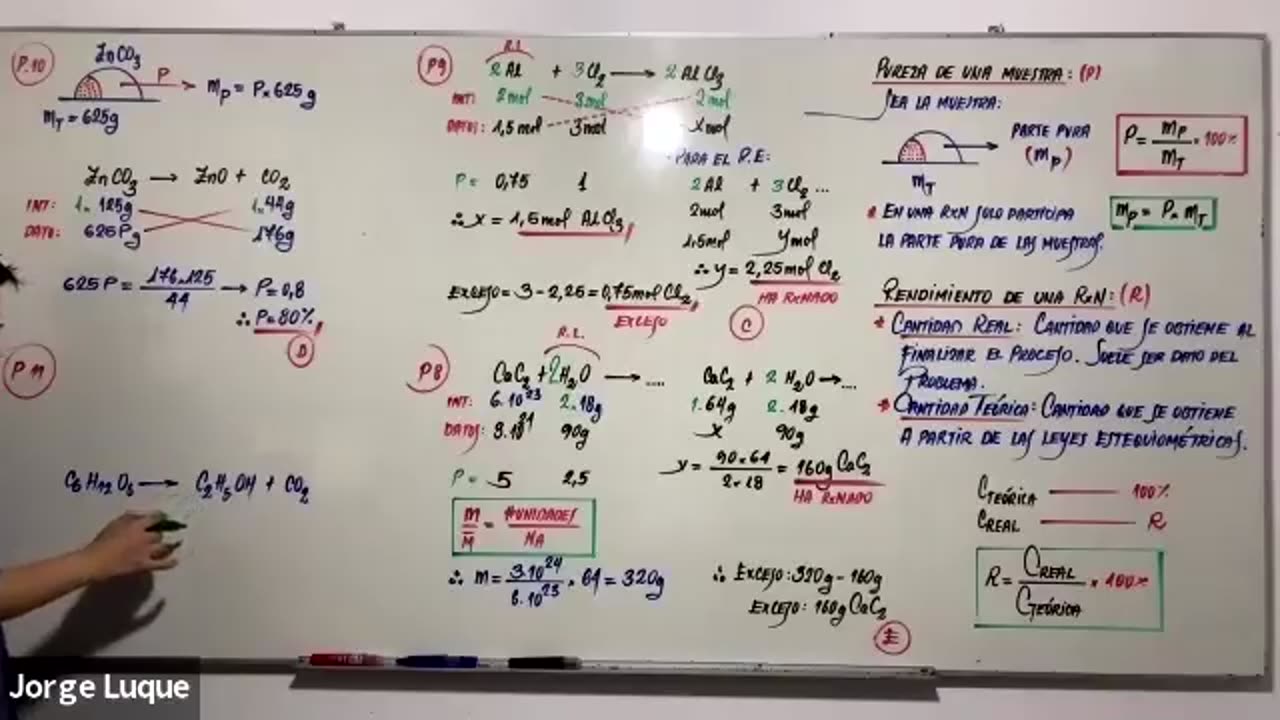 P.10
ZnCO₃
P
mp = P × 625g
m_T = 625g
ZnCO₃ → ZnO + CO₂
INT: 1. 125g 1.44g
DATO: 625Pg 176g
625P = 176.125/44 → P = 0,8
∴ P = 80%
D
P11
C₆H₁₂O₆ → C₂H₅OH + CO₂
P9
R.L.
2Al + 3Cl₂ → 2AlCl₃
INT: 2mol 3mol 2mol
DATOS: 1,5mol 3mol Xmol
P = 0,75 1
∴ X = 1,5mol AlCl₃
PARA EL R.E:
2Al + 3Cl₂ ...
2mol 3mol
1,5mol Ymol
∴ y = 2,25mol Cl₂
HA RxNADO
EXCESO = 3 - 2,25 = 0,75mol Cl₂
EXCESO
C
P8
R.L.
CaC₂ + 2H₂O → ....
INT: 6.10²³ 2.18g
DATOS: 3.10²⁴ 90g
P = 5 2,5
m/M̄ = #UNIDADES/NA
∴ m = 3.10²⁴/6.10²³ . 64 = 320g
CaC₂ + 2H₂O → ...
1.64g 2.18g
X 90g
X = 90×64/2×18 = 160g CaC₂
HA RxNADO
∴ EXCESO: 320g - 160g
EXCESO: 160g CaC₂
E
PUREZA DE UNA MUESTRA: (P)
SEA LA MUESTRA:
PARTE PURA
(mp)
m_T
P = mp/m_T × 100%
* EN UNA RxN SOLO PARTICIPA
LA PARTE PURA DE LAS MUESTRAS.
mp = P × m_T
RENDIMIENTO DE UNA RxN: (R)
* CANTIDAD REAL: CANTIDAD QUE SE OBTIENE AL
FINALIZAR EL PROCESO. SUELE SER DATO DEL
PROBLEMA.
* CANTIDAD TEÓRICA: CANTIDAD QUE SE OBTIENE
A PARTIR DE LAS LEYES ESTEQUIOMÉTRICAS.
C TEÓRICA — 100%
C REAL — R
R = C REAL/C TEÓRICA × 100%
Jorge Luque